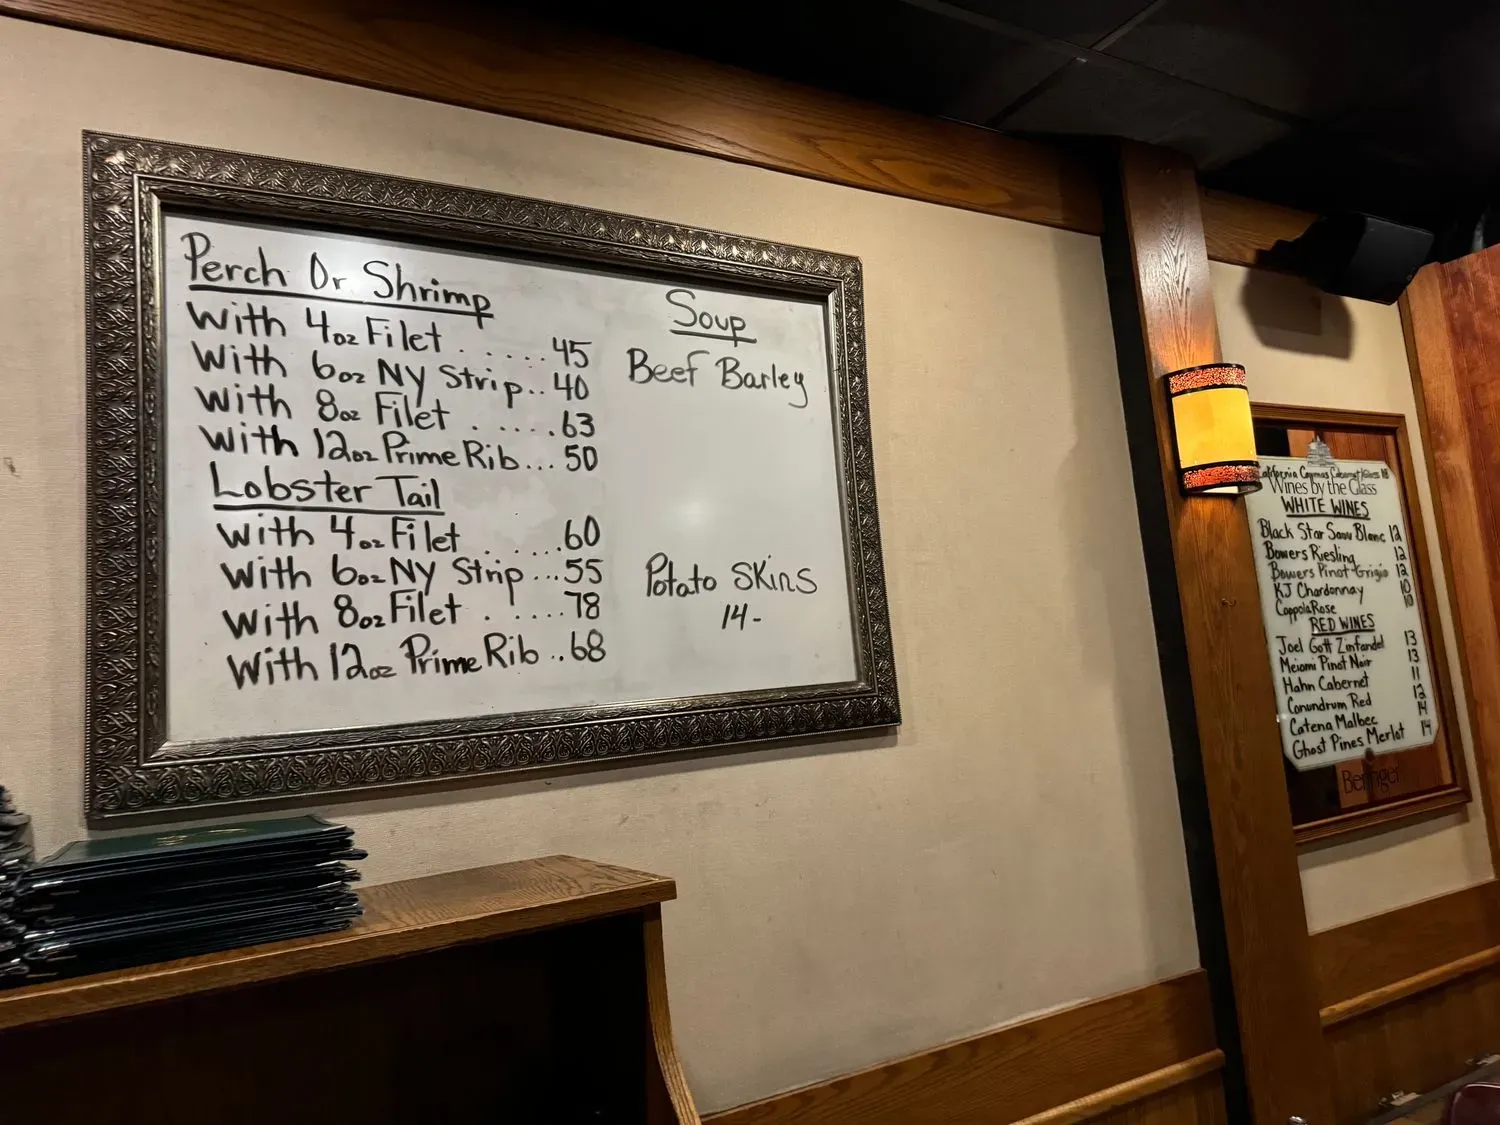 Perch Or Shrimp
With 4oz Filet . . . . . 45
With 6oz NY Strip.. 40
With 8oz Filet . . . . . 63
With 12oz Prime Rib... 50
Lobster Tail
With 4oz Filet . . . . . 60
With 6oz NY Strip ... 55
With 8oz Filet . . . . . 78
With 12oz Prime Rib .. 68
Soup
Beef Barley
Potato Skins
14-
California Caymus Cabernet/Glass
Wines by the Glass
WHITE WINES
Black Star Sauv Blanc 12
Bowers Riesling 12
Bowers Pinot Grigio 12
KJ Chardonnay 10
Coppola Rose 10
RED WINES
Joel Gott Zinfandel 13
Meiomi Pinot Noir 13
Hahn Cabernet 11
Conundrum Red 12
Catena Malbec 14
Ghost Pines Merlot 14
Beringer